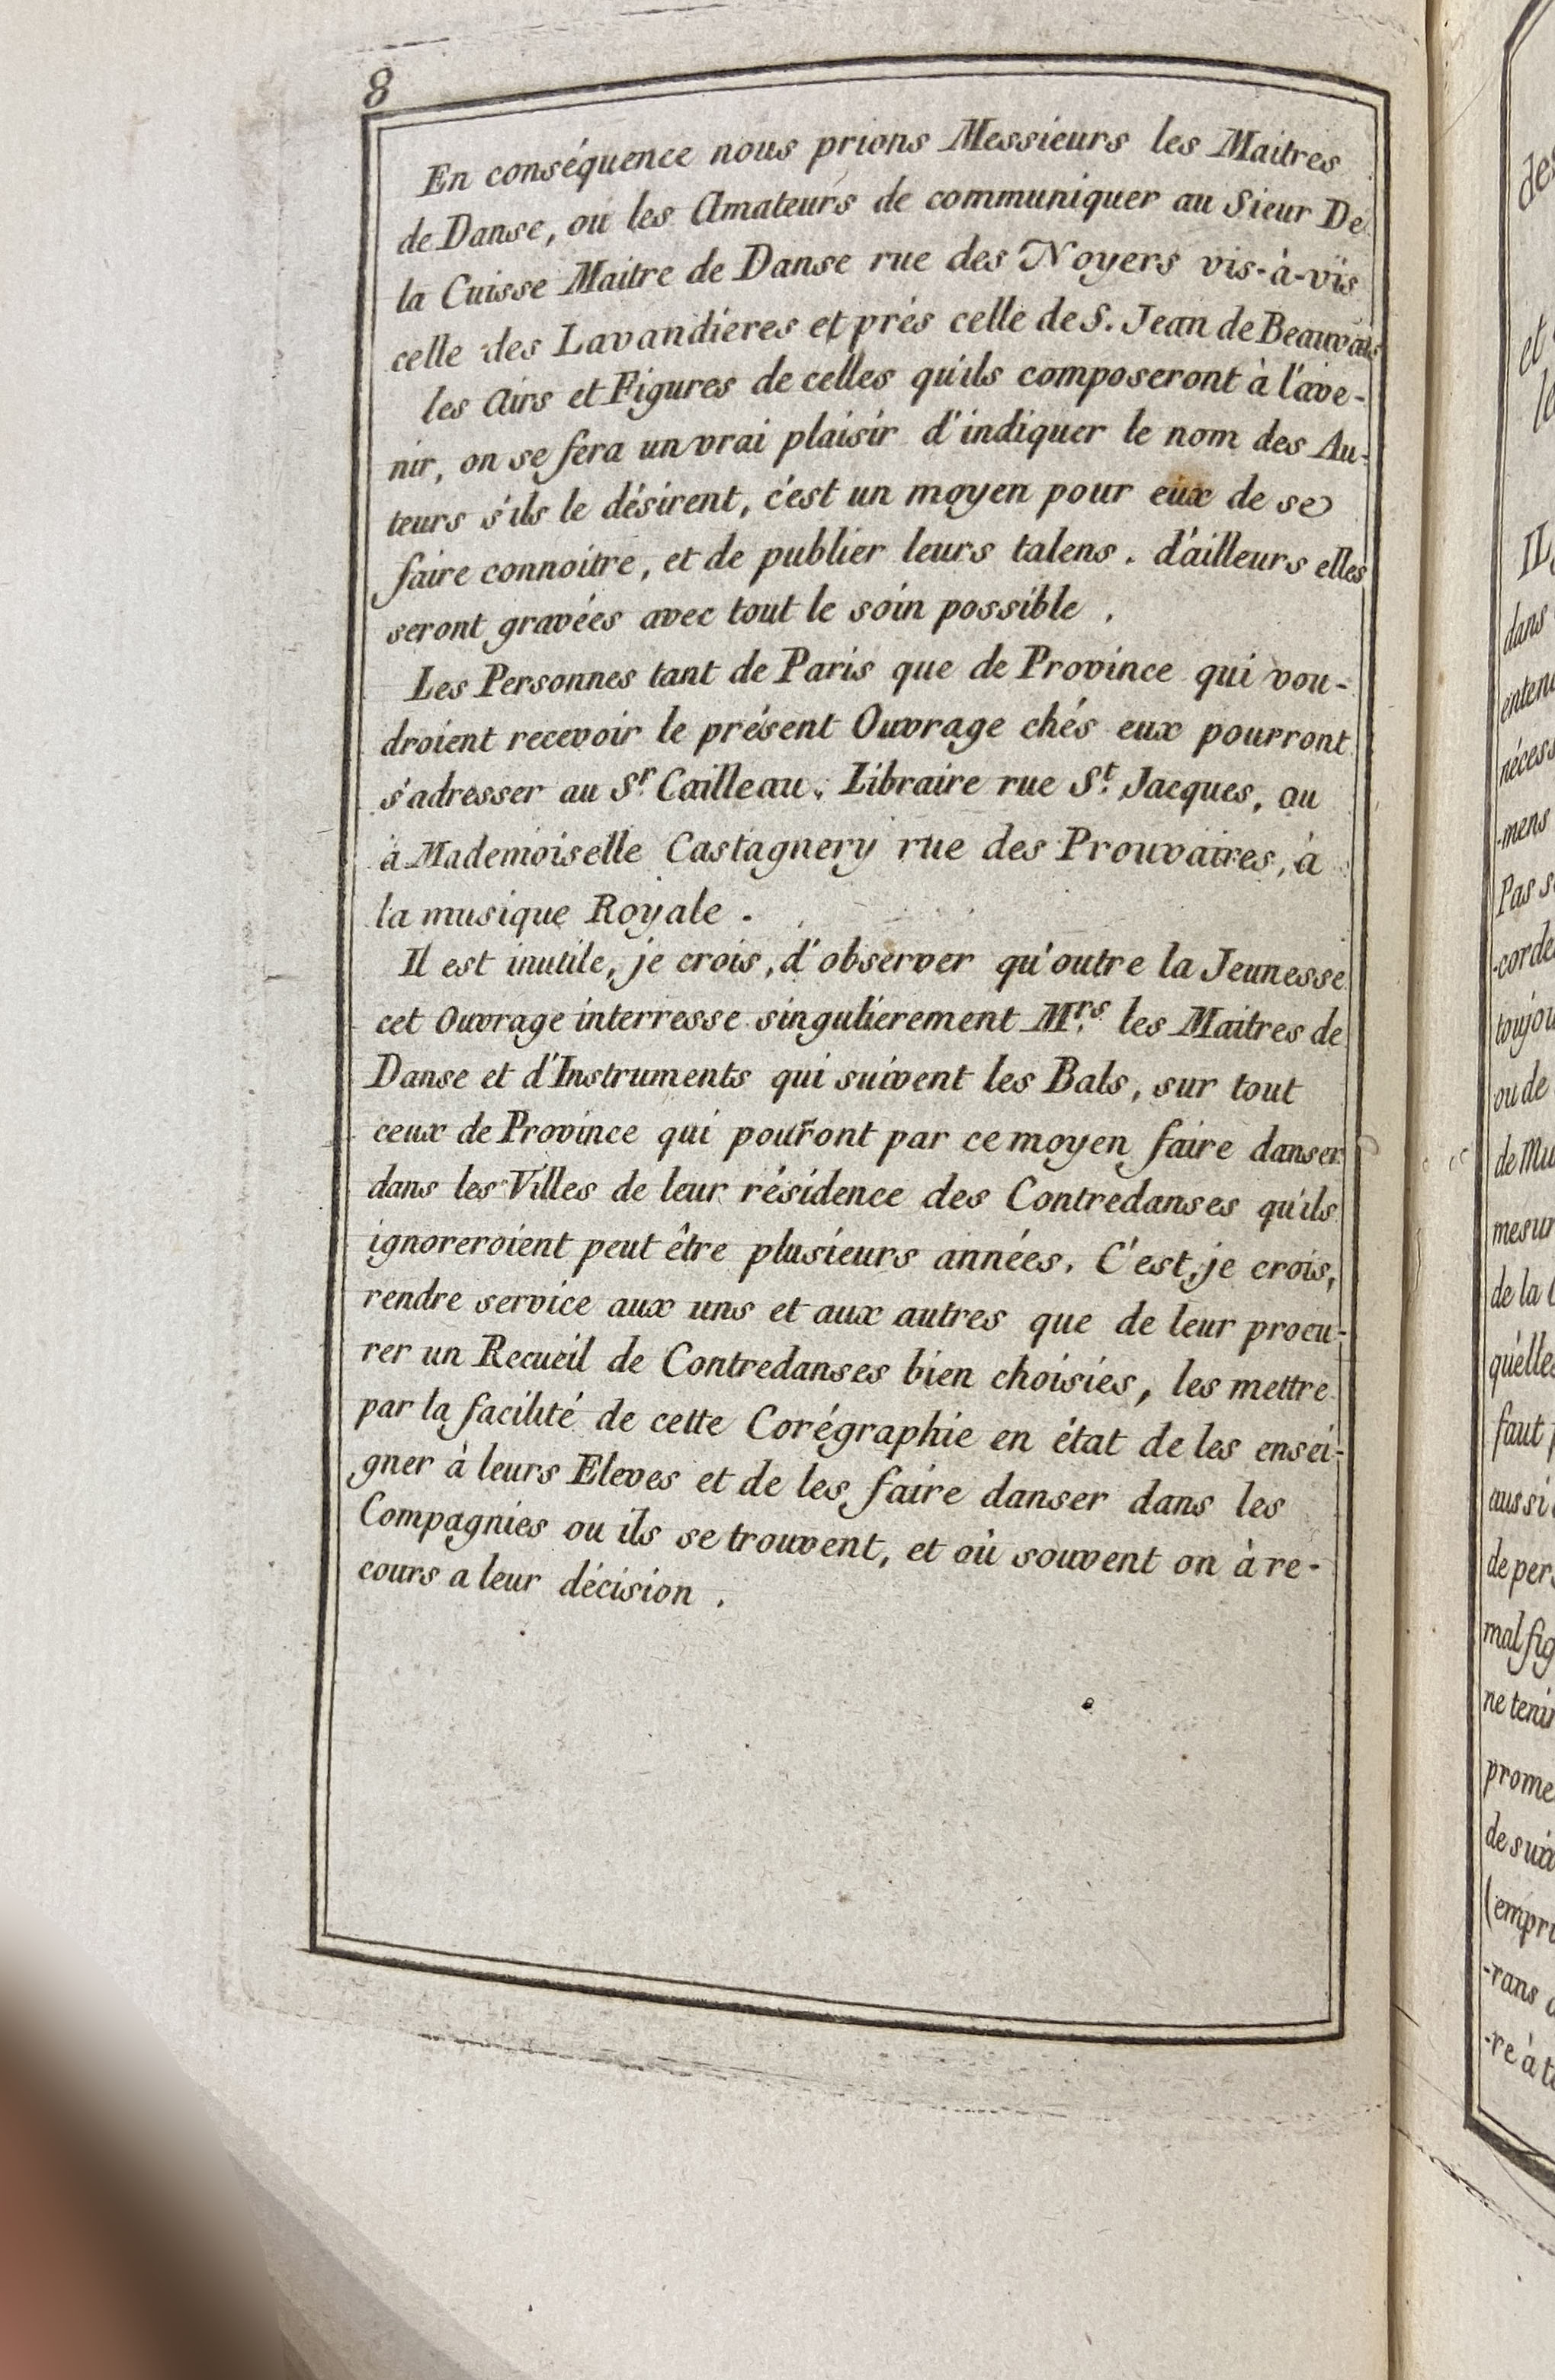 8
En conséquence nous prions Messieurs les Maitres
de Danse, ou les Amateurs de communiquer au Sieur De
la Cuisse Maitre de Danse rue des Noyers vis-à-vis
celle des Lavandieres et prés celle de S. Jean de Beauvais
les Airs et Figures de celles qu'ils composeront à l'ave-
nir, on se fera un vrai plaisir d'indiquer le nom des Au-
teurs s'ils le désirent, c'est un moyen pour eux de se
faire connoitre, et de publier leurs talens. d'ailleurs elles
seront gravées avec tout le soin possible.
Les Personnes tant de Paris que de Province qui vou-
droient recevoir le présent Ouvrage chés eux pourront
s'adresser au Sr. Cailleau, Libraire rue St. Jacques, ou
à Mademoiselle Castagnery rue des Prouvaires, à
la musique Royale.
Il est inutile, je crois, d'observer qu'outre la Jeunesse
cet Ouvrage interresse singulierement Mrs. les Maitres de
Danse et d'Instruments qui suivent les Bals, sur tout
ceux de Province qui pouront par ce moyen faire danser
dans les Villes de leur résidence des Contredanses qu'ils
ignoreroient peut être plusieurs années. C'est, je crois,
rendre service aux uns et aux autres que de leur procu-
rer un Recueil de Contredanses bien choisies, les mettre
par la facilité de cette Corégraphie en état de les ensei-
gner à leurs Eleves et de les faire danser dans les
Compagnies ou ils se trouvent, et où souvent on à re-
cours a leur décision.
des
et
IL
dans
néces
-mens
Pas
-corde
ou de
de la
faut
aussi
de per
mal fig
ne teni
prome
(empr
-rans
-re à